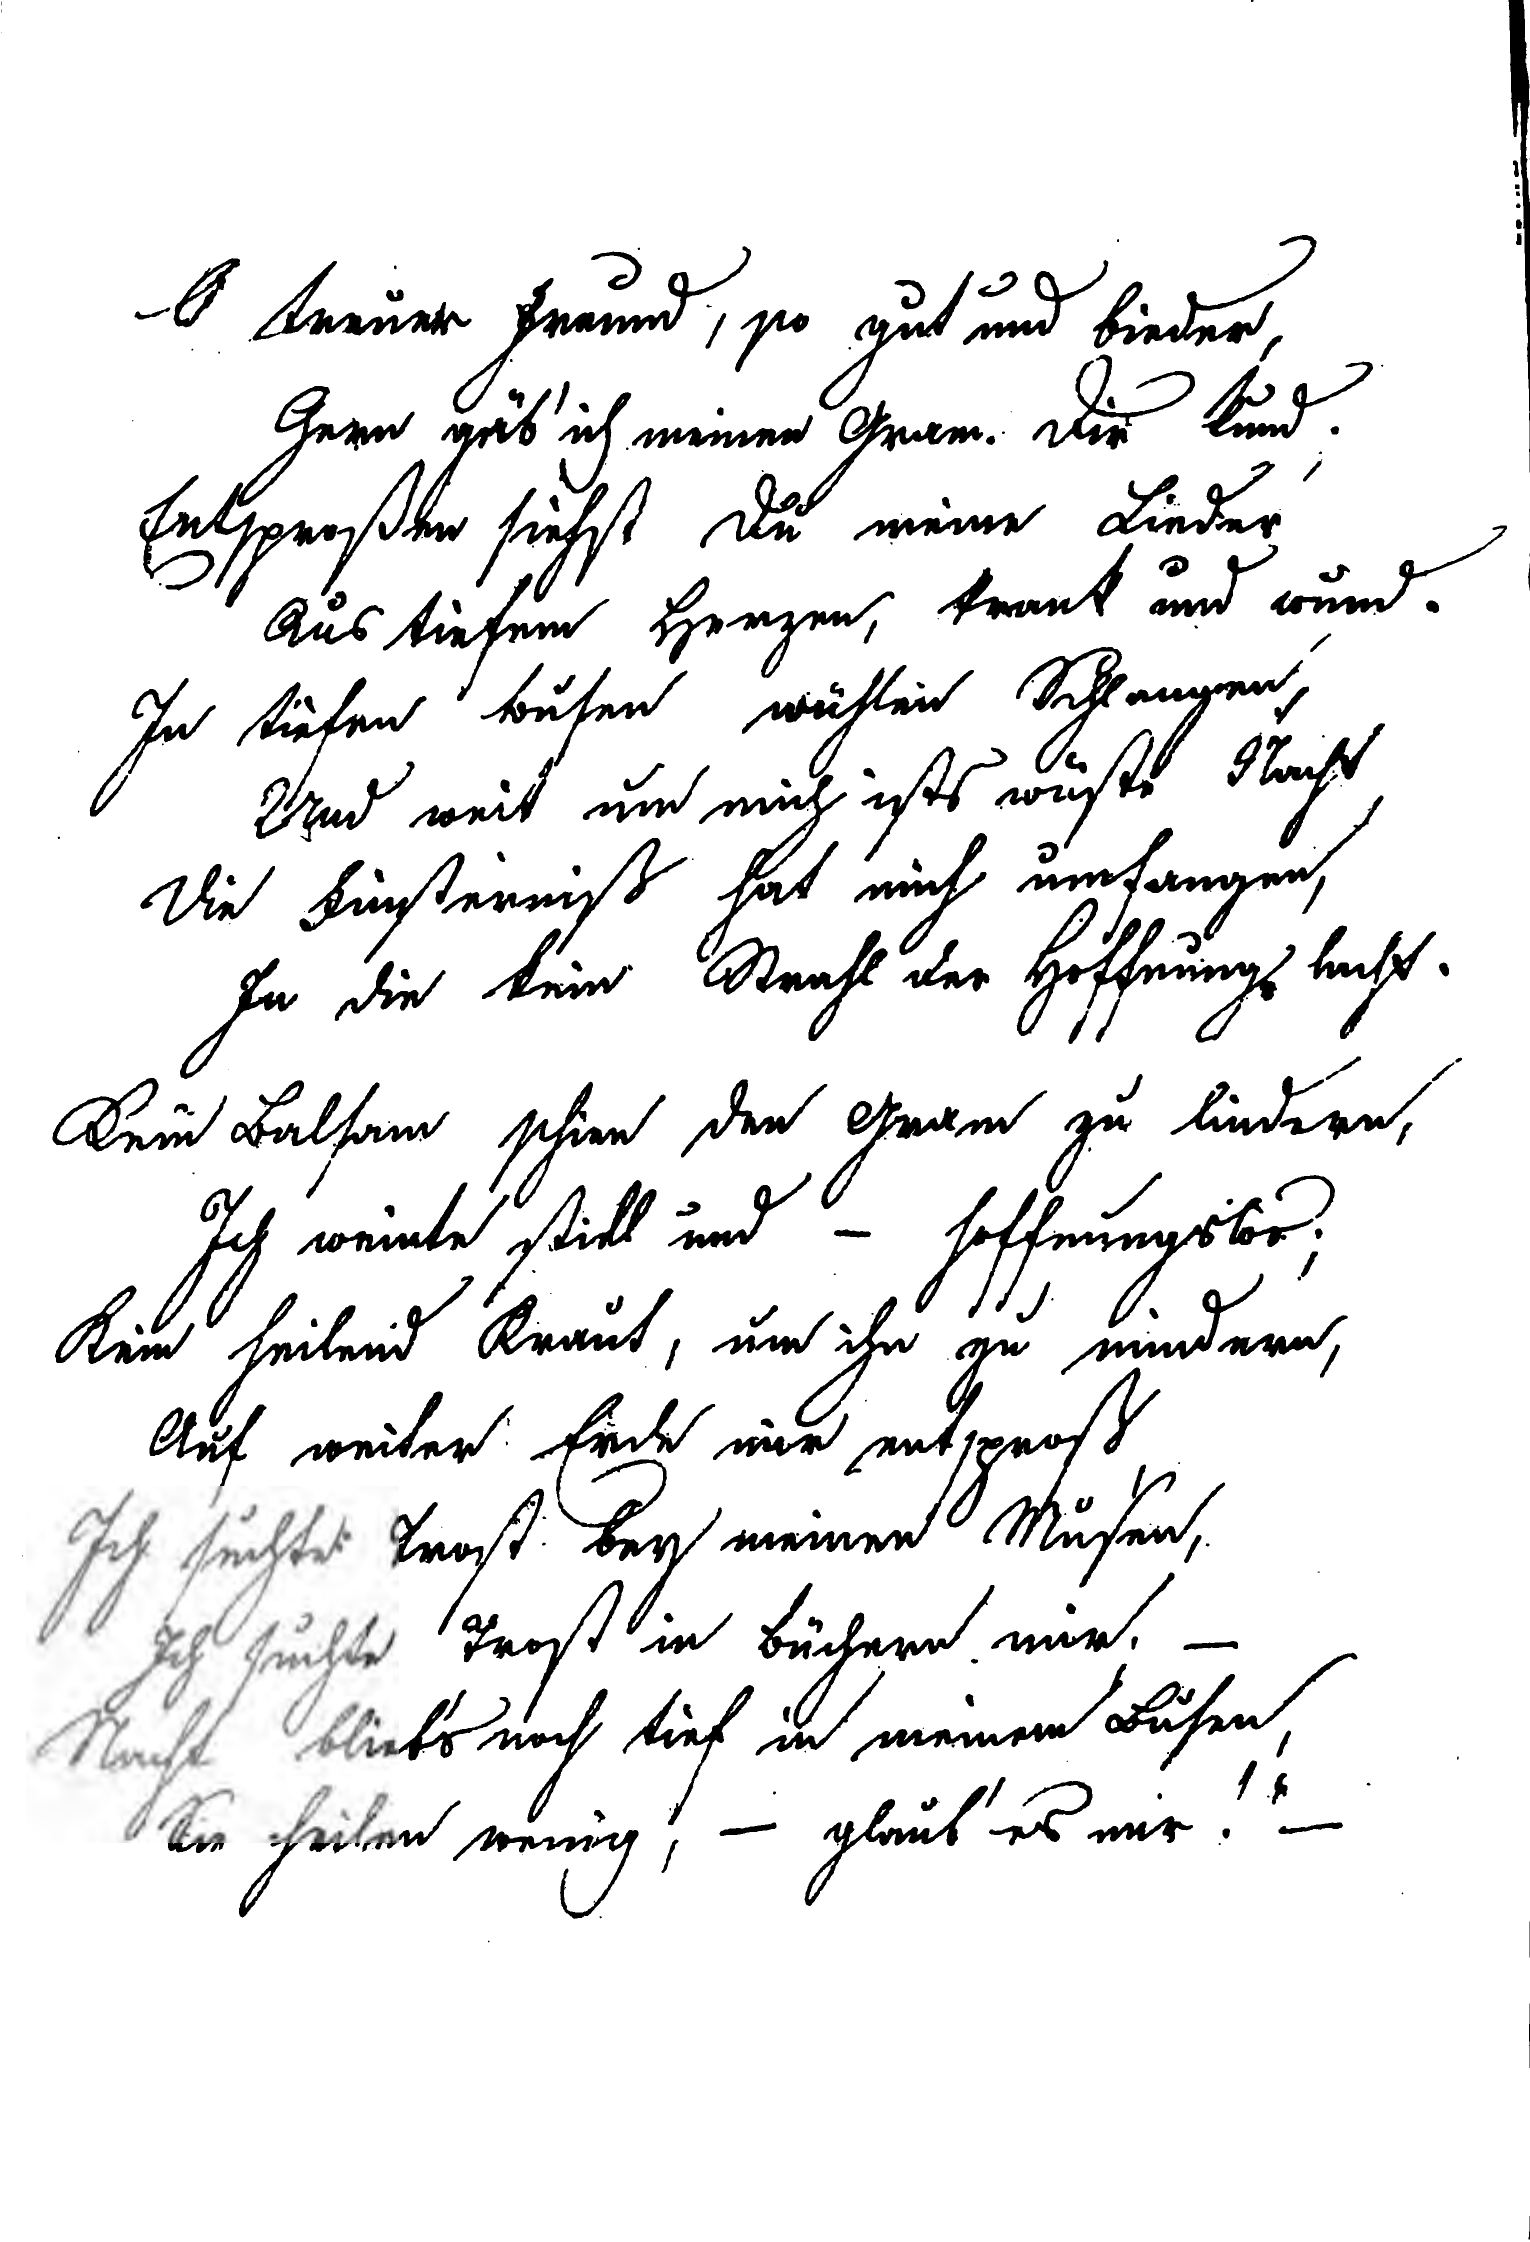 O treuer Freund, so gut und bieder,
Gern gäb' ich meinen Gram Dir kund.
Entsproßen siehst Du meine Lieder
Aus tiefem Herzen, krank und wund.
In tiefen Busen wühlen Schlangen,
Und weit um mich ists wüste Nacht,
Die Finsterniß hat mich umfangen,
In die kein Strahl der Hoffnung lacht.
Kein Balsam schien den Gram zu lindern,
Ich weinte still und – hoffnungslos;
Kein heilend Kraut, um ihn zu mindern,
Auf weiter Erde mir entsproß
Ich suchte Trost bey meinen Musen,
Ich suchte Trost in Büchern mir. –
Nacht blieb's noch tief in meinem Busen,
Sie heilen wenig; – glaub' es mir! –